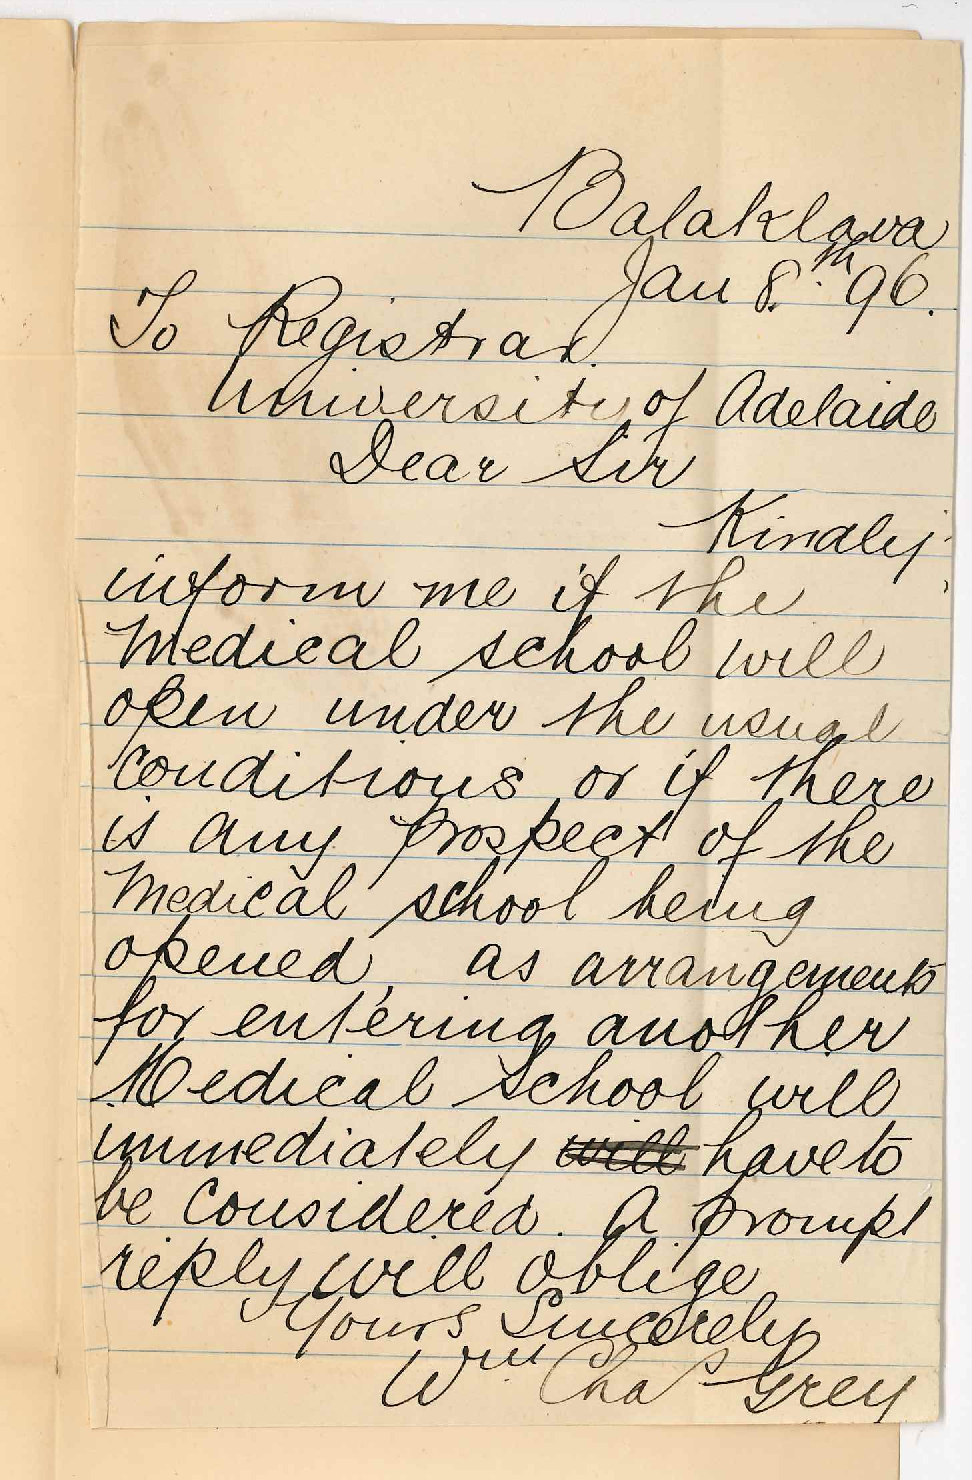 Balaklava
Jan 8th. 96.
To Registrar
University of Adelaide
Dear Sir
Kindly
inform me if the
Medical school will
open under the usual
conditions or if there
is any prospect of the
Medical school being
opened, as arrangements
for entering another
Medical School will
immediately will have to
be considered. A prompt
reply will oblige
Yours Sincerely
Wm Chas Grey